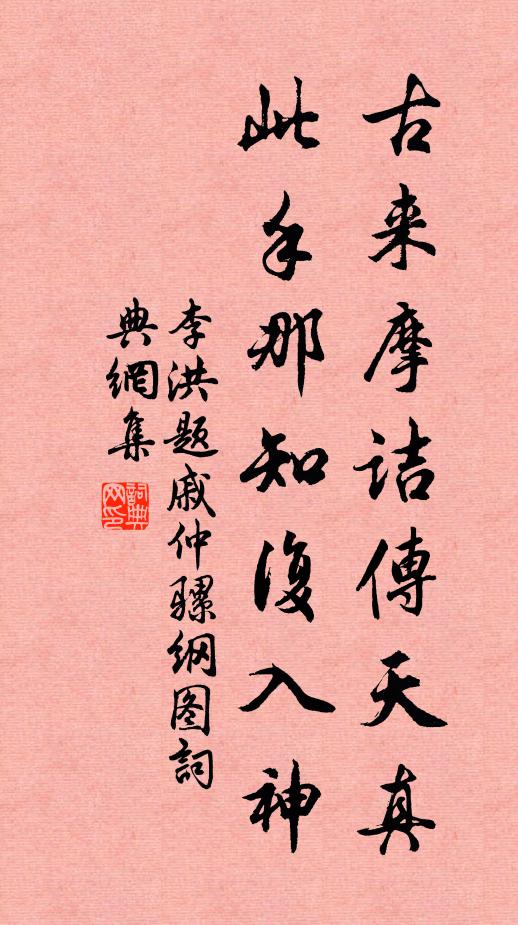 古来摩诘傳天真
此手那知復入神
李洪题戚仲骡纲图詞
典網集
詞典网印